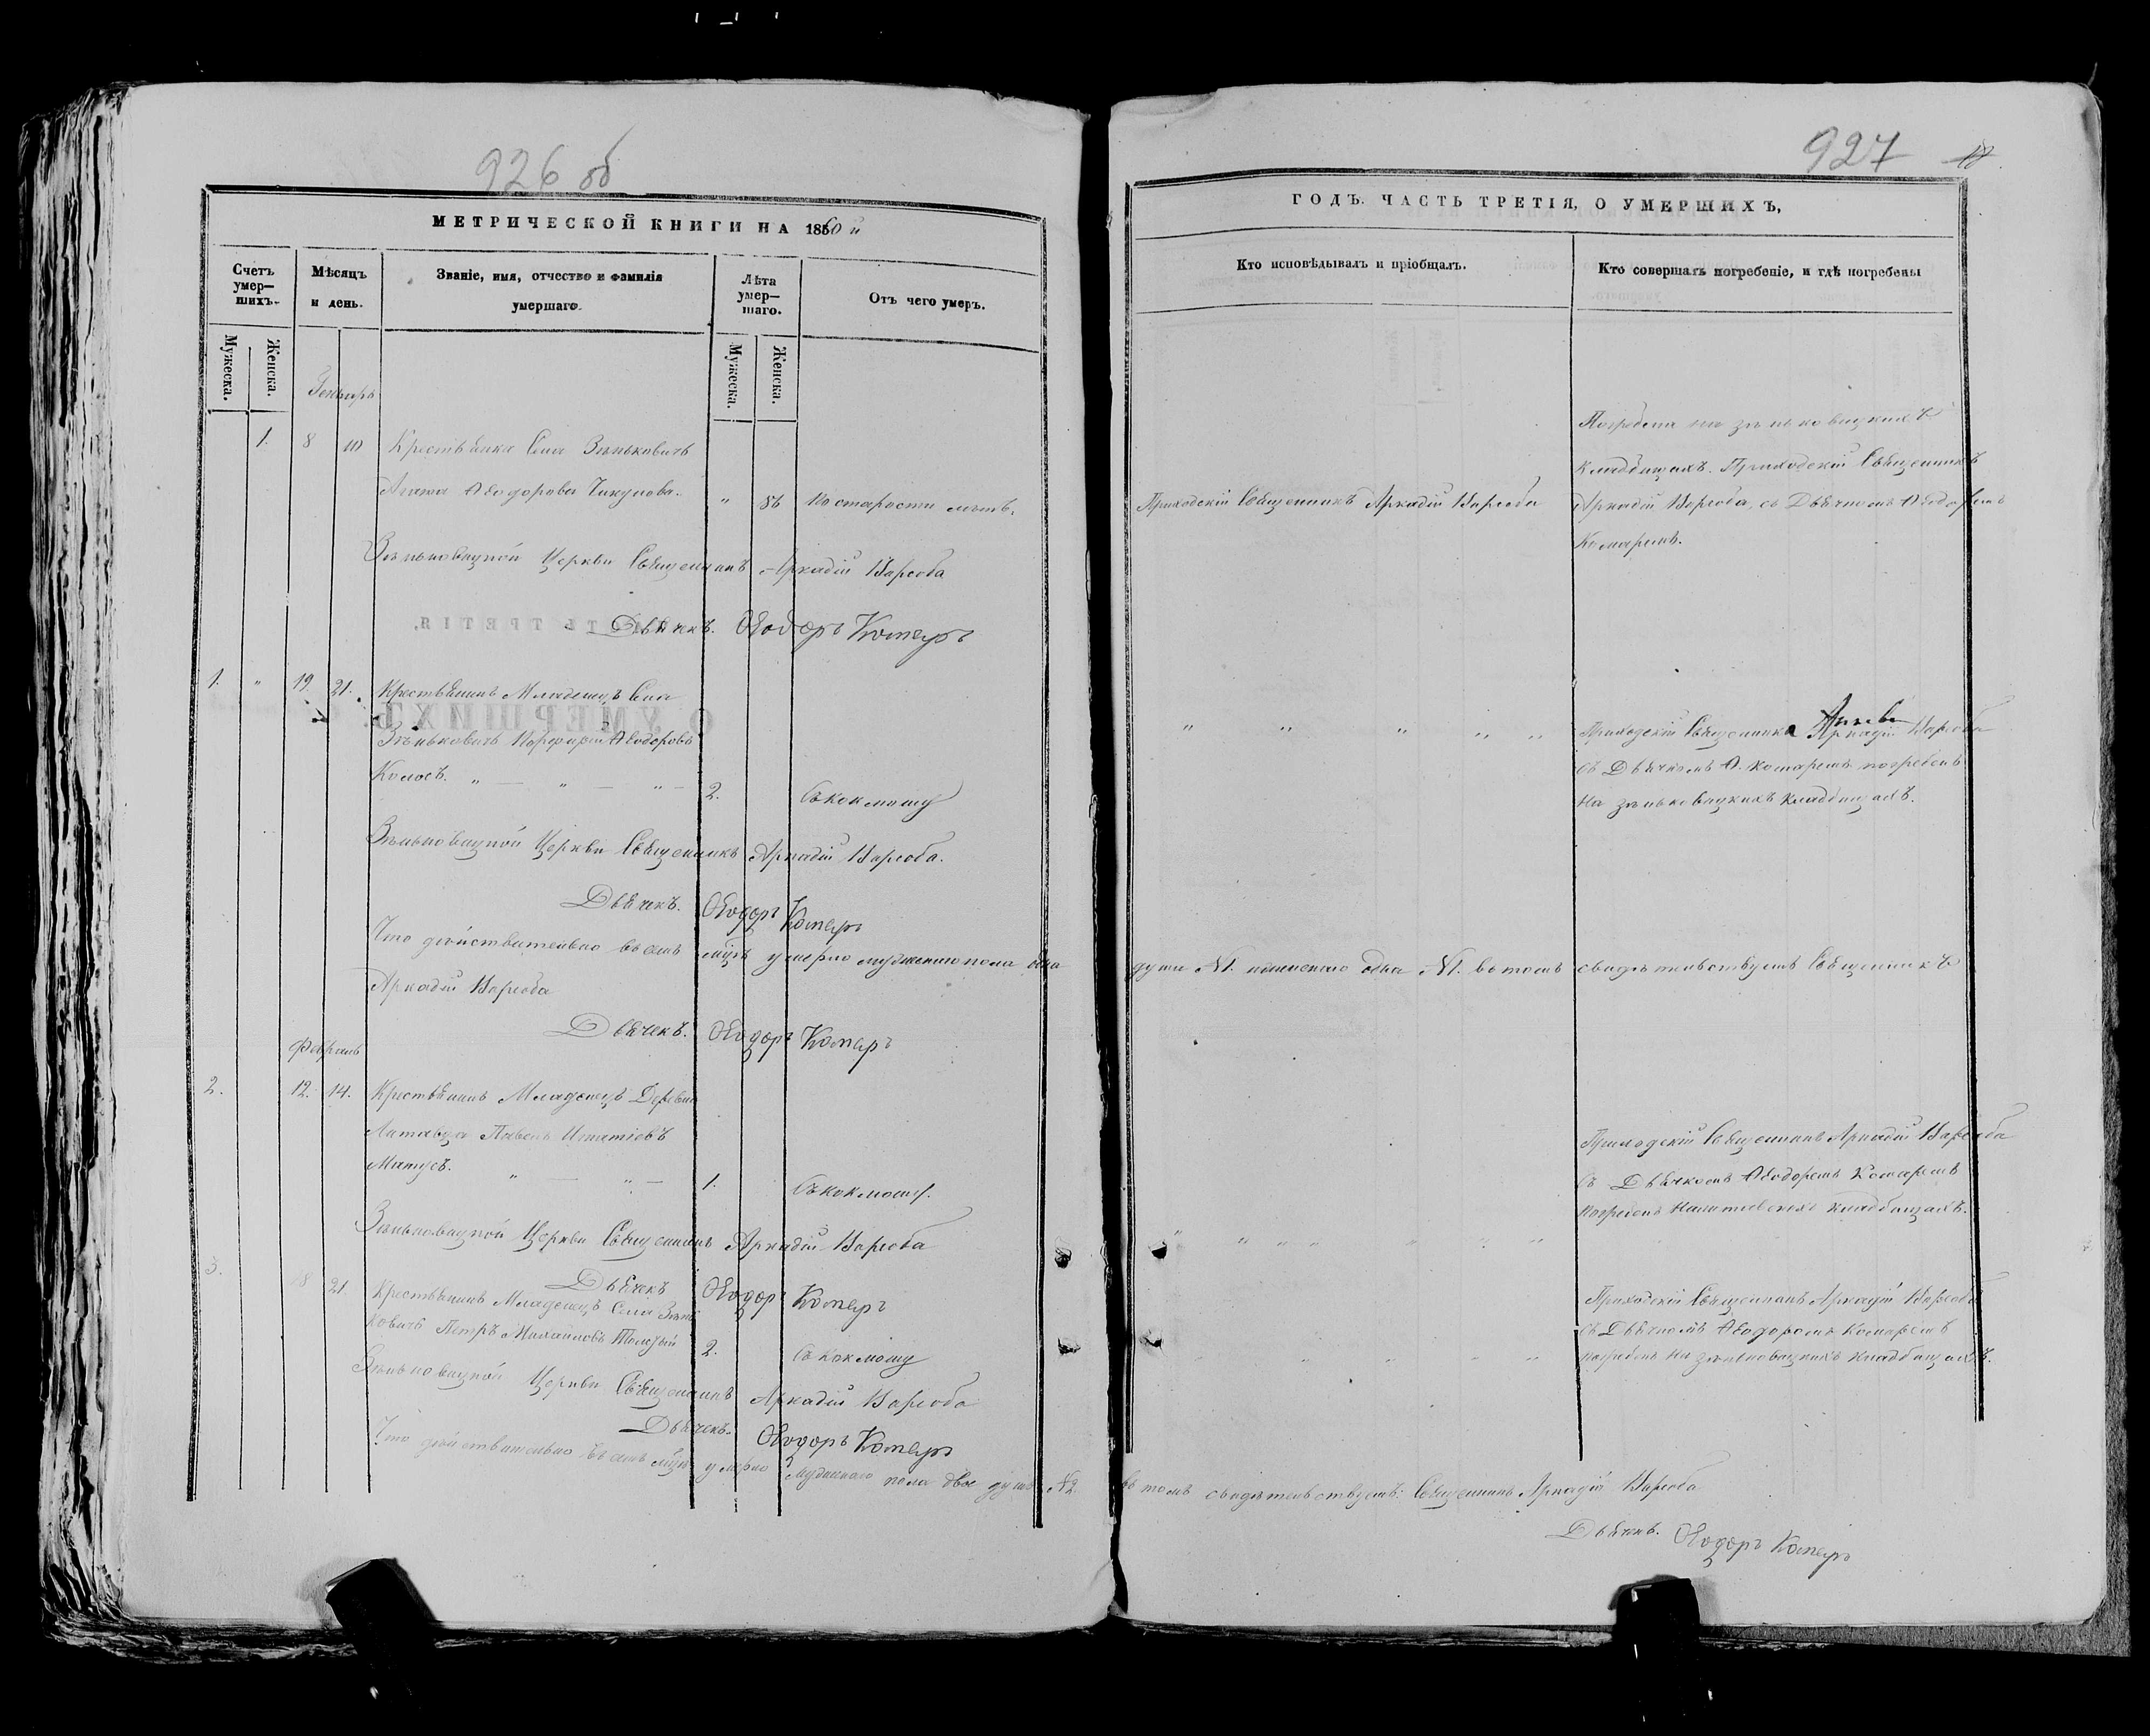 926 об
МЕТРИЧЕСКОЙ КНИГИ НА 1860 й
Счетъ умер—шихъ.
Мѣсяцъ и день.
Званіе, имя, отчество и фамилія умершаго.
Лѣта умер—шаго.
Отъ чего умеръ.
Мужеска.
Женска.
Мужеска.
Женска.
Генварь
1. 8 10 Крестьянка Села Зѣньковичъ
Ѳеодорова " 86 По старости лѣтъ.
Зѣньковицкой Церкви Священникъ Аркадій
Дьячекъ. Ѳеодоръ Комаръ
1. " 19. 21. Крестьянинъ Младенецъ Села
Зѣньковичъ Порфирій Ѳеодоровъ
Колосъ. " — " — " — 2. Съ кокмошу
Зѣньковицкой Церкви Священникъ Аркадій
Дьячекъ. Ѳеодоръ Комаръ
Что дѣйствительно въ семъ мцѣ умерло мужескаго пола одна
Аркадій
Дьячекъ. Ѳеодоръ Комаръ
Февраль
2. 12. 14. Крестьянинъ Младенецъ Деревни
Павелъ Игнатіевъ
1. Съ кокмошу.
Зѣньковицкой Церкви Священникъ Аркадій
3. 18 21. Дьячекъ Ѳеодоръ Комаръ
Крестьянинъ Младенецъ Села Зѣнь
ковичъ Петръ Михайловъ Толстый 2. Съ кокмошу
Зѣньковицкой Церкви Священникъ Аркадій
Дьячекъ. Ѳеодоръ Комаръ
Что дѣйствительно въ семъ мцѣ умерло мужескаго пола двое душъ №2.
927
ГОДЪ. ЧАСТЬ ТРЕТІЯ, О УМЕРШИХЪ,
Кто исповѣдывалъ и пріобщалъ.
Кто совершалъ погребеніе, и гдѣ погребены
Погребена на зѣньковицкихъ
кладбищахъ. Приходскій Священникъ
Приходскій Священникъ Аркадій
Аркадій съ Дьячкомъ Ѳеодоромъ
Комаремъ.
" " " " " Приходскій Священникъ Аркадій
съ Дьячкомъ Ѳ. Комаремъ погребенъ
на зѣньковицкихъ кладбищахъ.
души №1. женскаго одна №1. въ томъ свидѣтельствуетъ Священникъ
Приходскій Священникъ Аркадій
съ Дьячкомъ Ѳеодоромъ Комаремъ
погребенъ кладбищахъ.
Приходскій Священникъ Аркадій
съ Дьячкомъ Ѳеодоромъ Комаремъ
погребенъ на зѣньковицкихъ кладбищахъ.
въ томъ свидѣтельствуетъ: Священникъ Аркадій
Дьячекъ. Ѳеодоръ Комаръ